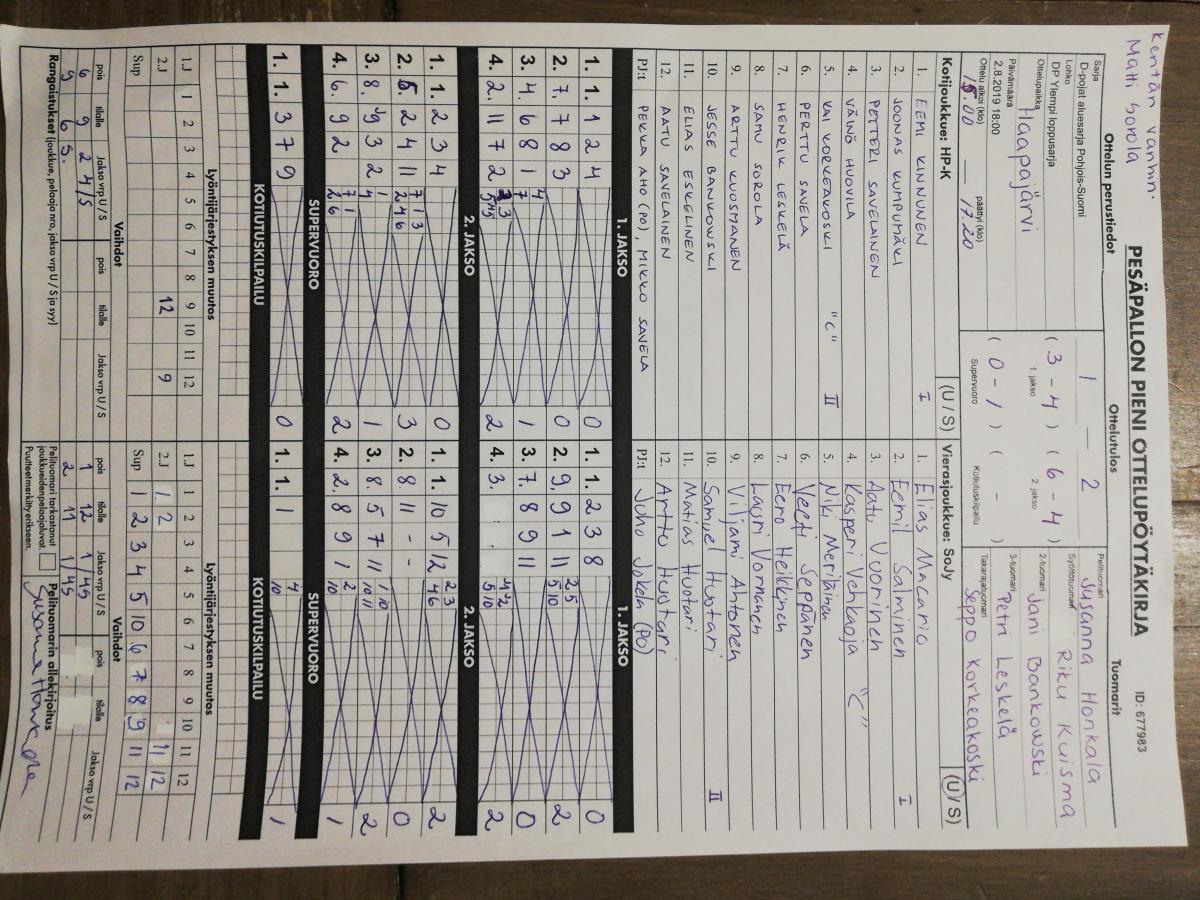 Kentän vanhin:
Matti Sorola
PESÄPALLON PIENI OTTELUPÖYTÄKIRJA
ID: 677983
Ottelun perustiedot
Sarja
D-pojat aluesarja Pohjois-Suomi
Lohko
DP Ylempi loppusarja
Ottelupaikka
Haapajärvi
Päivämäärä
2.8.2019 18:00
Ottelu alkoi (klo)
päättyi (klo)
17.20
Ottelutulos
1 — 2
( 3 - 4 ) ( 6 - 4 )
1. jakso 2. jakso
( 0 - 1 ) ( - )
Supervuoro Kotiutuskilpailu
Tuomarit
Pelituomari
Susanna Honkala
Syöttötuomari
Riku Kuisma
2-tuomari
Jani Bankowski
3-tuomari
Petri Leskelä
Takarajatuomari
Seppo Korkeakoski
Kotijoukkue: HP-K (U / S)
1. EEMI KINNUNEN I
2. JOONAS KUMPUMÄKI
3. PETTERI SAVELAINEN
4. VÄINÖ HUOVILA
5. KAI KORKEAKOSKI "C" II
6. PERTTU SAVELA
7. HENRIK LESKELÄ
8. SAMU SOROLA
9. ARTTU KUOSMANEN
10. JESSE BANKOWSKI
11. ELIAS ESKELINEN
12. AATU SAVELAINEN
PJ:t PEKKA AHO (PO), MIKKO SAVELA
Vierasjoukkue: SoJy (U / S)
1. Elias Macario
2. Eemil Salminen I
3. Aatu Vuorinen
4. Kasperi Venkaoja "C"
5. Niki Meriläinen
6. Veeti Seppänen
7. Eero Heikkinen
8. Lauri Vormanen
9. Viljami Ahtonen
10. Samuel Huotari II
11. Matias Huotari
12. Arttu Huotari
PJ:t Juho Jokela (PO)
1. JAKSO
1. 1 2 4 0
2. 7. 7 8 3 0
3. 4. 6 8 1 1
4. 2. 11 7 2 2
1. JAKSO
1. 1. 2 3 8 0
2. 9. 9 1 11 2
3. 7. 8 9 11 0
4. 3. 2
2. JAKSO
1. 1. 2 3 4 0
2. 5. 2 4 11 3
3. 8. 3 2 1
4. 6. 9 2 2
2. JAKSO
1. 1. 10 5 12 2
2. 8. 11 - - 0
3. 8. 5 7 11 2
4. 2. 8 9 1 1
SUPERVUORO
1. 1. 3 7 9 0
SUPERVUORO
1. 1. 1 1
KOTIUTUSKILPAILU
KOTIUTUSKILPAILU
Lyöntijärjestyksen muutos
1 2 3 4 5 6 7 8 9 10 11 12
1.J
2.J 12 9
Sup
Vaihdot
pois tilalle Jakso vrp U / S pois tilalle Jakso vrp U / S
6 9 2 4/S
9 6 S.
Rangaistukset (joukkue, pelaaja nro, jakso vrp U / S ja syy)
Lyöntijärjestyksen muutos
1 2 3 4 5 6 7 8 9 10 11 12
1.J
2.J 1. 2 11 12
Sup 1 2 3 4 5 10 6 7 8 9 11 12
Vaihdot
pois tilalle Jakso vrp U / S pois tilalle Jakso vrp U / S
1 12 1/4S
2 11 1/4S
Pelituomari tarkastanut
joukkueiden pelaajaluvat.
Puutteet merkitty erikseen.
Pelituomarin allekirjoitus
Susanna Honkala